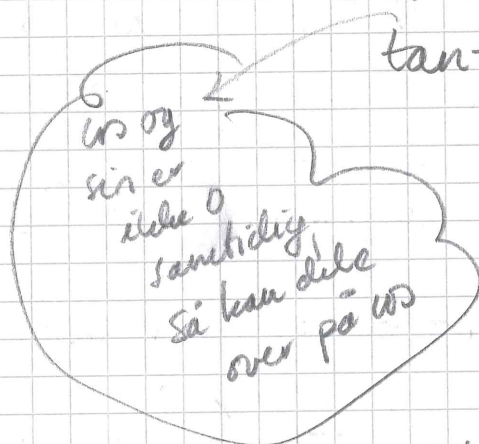 tan-
cos og
sin er
ikke 0
samtidig,
så kan dele
over på cos